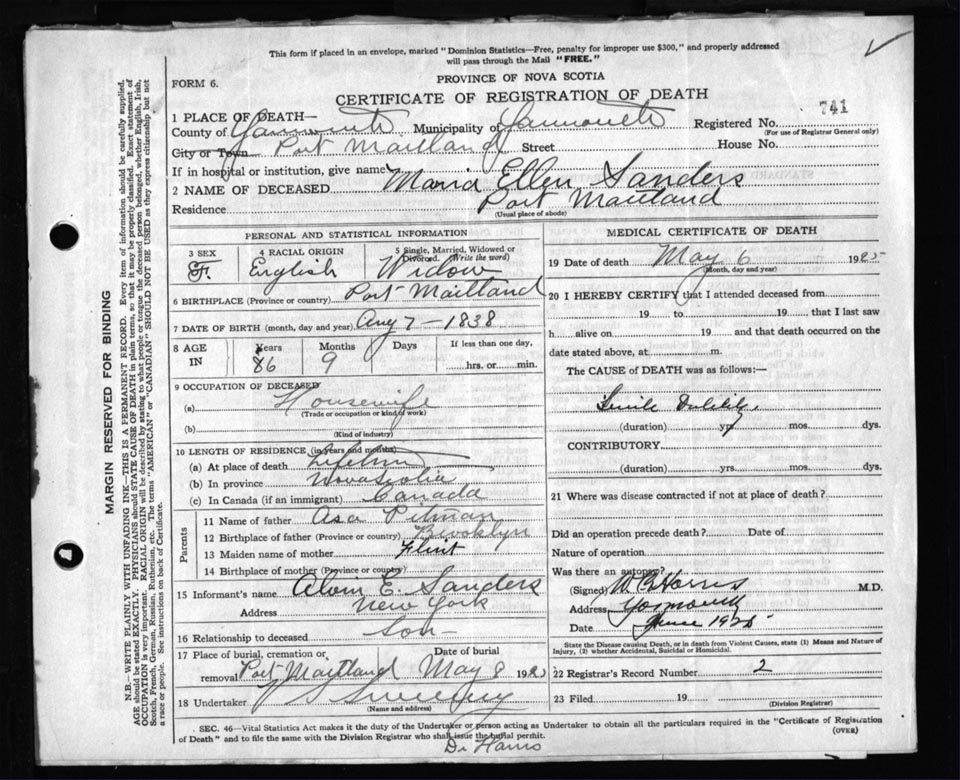 This form if placed in an envelope, marked "Dominion Statistics—Free, penalty for improper use $300," and properly addressed
will pass through the Mail "FREE."
FORM 6.
PROVINCE OF NOVA SCOTIA
CERTIFICATE OF REGISTRATION OF DEATH
741
1 PLACE OF DEATH—
County of Yarmouth Municipality of Yarmouth Registered No.
(For use of Registrar General only)
City or Town Port Maitland Street House No.
If in hospital or institution, give name
2 NAME OF DECEASED Maria Ellen Sanders
Residence Port Maitland
(Usual place of abode)
PERSONAL AND STATISTICAL INFORMATION
3 SEX F. 4 RACIAL ORIGIN English 5 Single, Married, Widowed or Divorced. (Write the word) Widow
6 BIRTHPLACE (Province or country) Port Maitland
7 DATE OF BIRTH (month, day and year) Aug 7 - 1838
8 AGE IN Years 86 Months 9 Days If less than one day, hrs. or min.
9 OCCUPATION OF DECEASED
(a) Housewife
(Trade or occupation or kind of work)
(b)
(Kind of industry)
10 LENGTH OF RESIDENCE (in years and months)
(a) At place of death Lifetime
(b) In province Nova Scotia
(c) In Canada (if an immigrant) Canada
Parents
11 Name of father Asa Pitman
12 Birthplace of father (Province or country) Brooklyn
13 Maiden name of mother Flint
14 Birthplace of mother (Province or country)
15 Informant's name Alvin E. Sanders
Address New York
16 Relationship to deceased Son
17 Place of burial, cremation or removal Port Maitland Date of burial May 8 192
18 Undertaker J Sweeny
(Name and address)
MEDICAL CERTIFICATE OF DEATH
19 Date of death May 6 1925
(Month, day and year)
20 I HEREBY CERTIFY that I attended deceased from
19 to 19 that I last saw
h alive on 19 and that death occurred on the
date stated above, at m.
The CAUSE of DEATH was as follows:—
Senile Debility
(duration) yrs. mos. dys.
CONTRIBUTORY
(duration) yrs. mos. dys.
21 Where was disease contracted if not at place of death?
Did an operation precede death? Date of
Nature of operation
Was there an autopsy?
(Signed) W. C. Harris M.D.
Address Yarmouth
Date June 1925
State the Disease causing Death, or in death from Violent Causes, state (1) Means and Nature of
Injury, (2) whether Accidental, Suicidal or Homicidal.
22 Registrar's Record Number 2
23 Filed 19
(Division Registrar)
SEC. 46—Vital Statistics Act makes it the duty of the Undertaker or person acting as Undertaker to obtain all the particulars required in the "Certificate of Registration
of Death" and to file the same with the Division Registrar who shall issue the burial permit.
(OVER)
Dr Harris
MARGIN RESERVED FOR BINDING
N.B.—WRITE PLAINLY WITH UNFADING INK—THIS IS A PERMANENT RECORD. Every item of information should be carefully supplied.
AGE should be stated EXACTLY. PHYSICIANS should STATE CAUSE OF DEATH in plain terms, so that it may be properly classified. Exact statement of
OCCUPATION is very important. RACIAL ORIGIN will be described by stating to what people or tongue the deceased person belonged, whether English, Irish,
Scotch, French, German, Russian, Ruthenian, etc. The terms "AMERICAN" or "CANADIAN" SHOULD NOT BE USED as they express citizenship but not
a race or people. See instructions on back of Certificate.